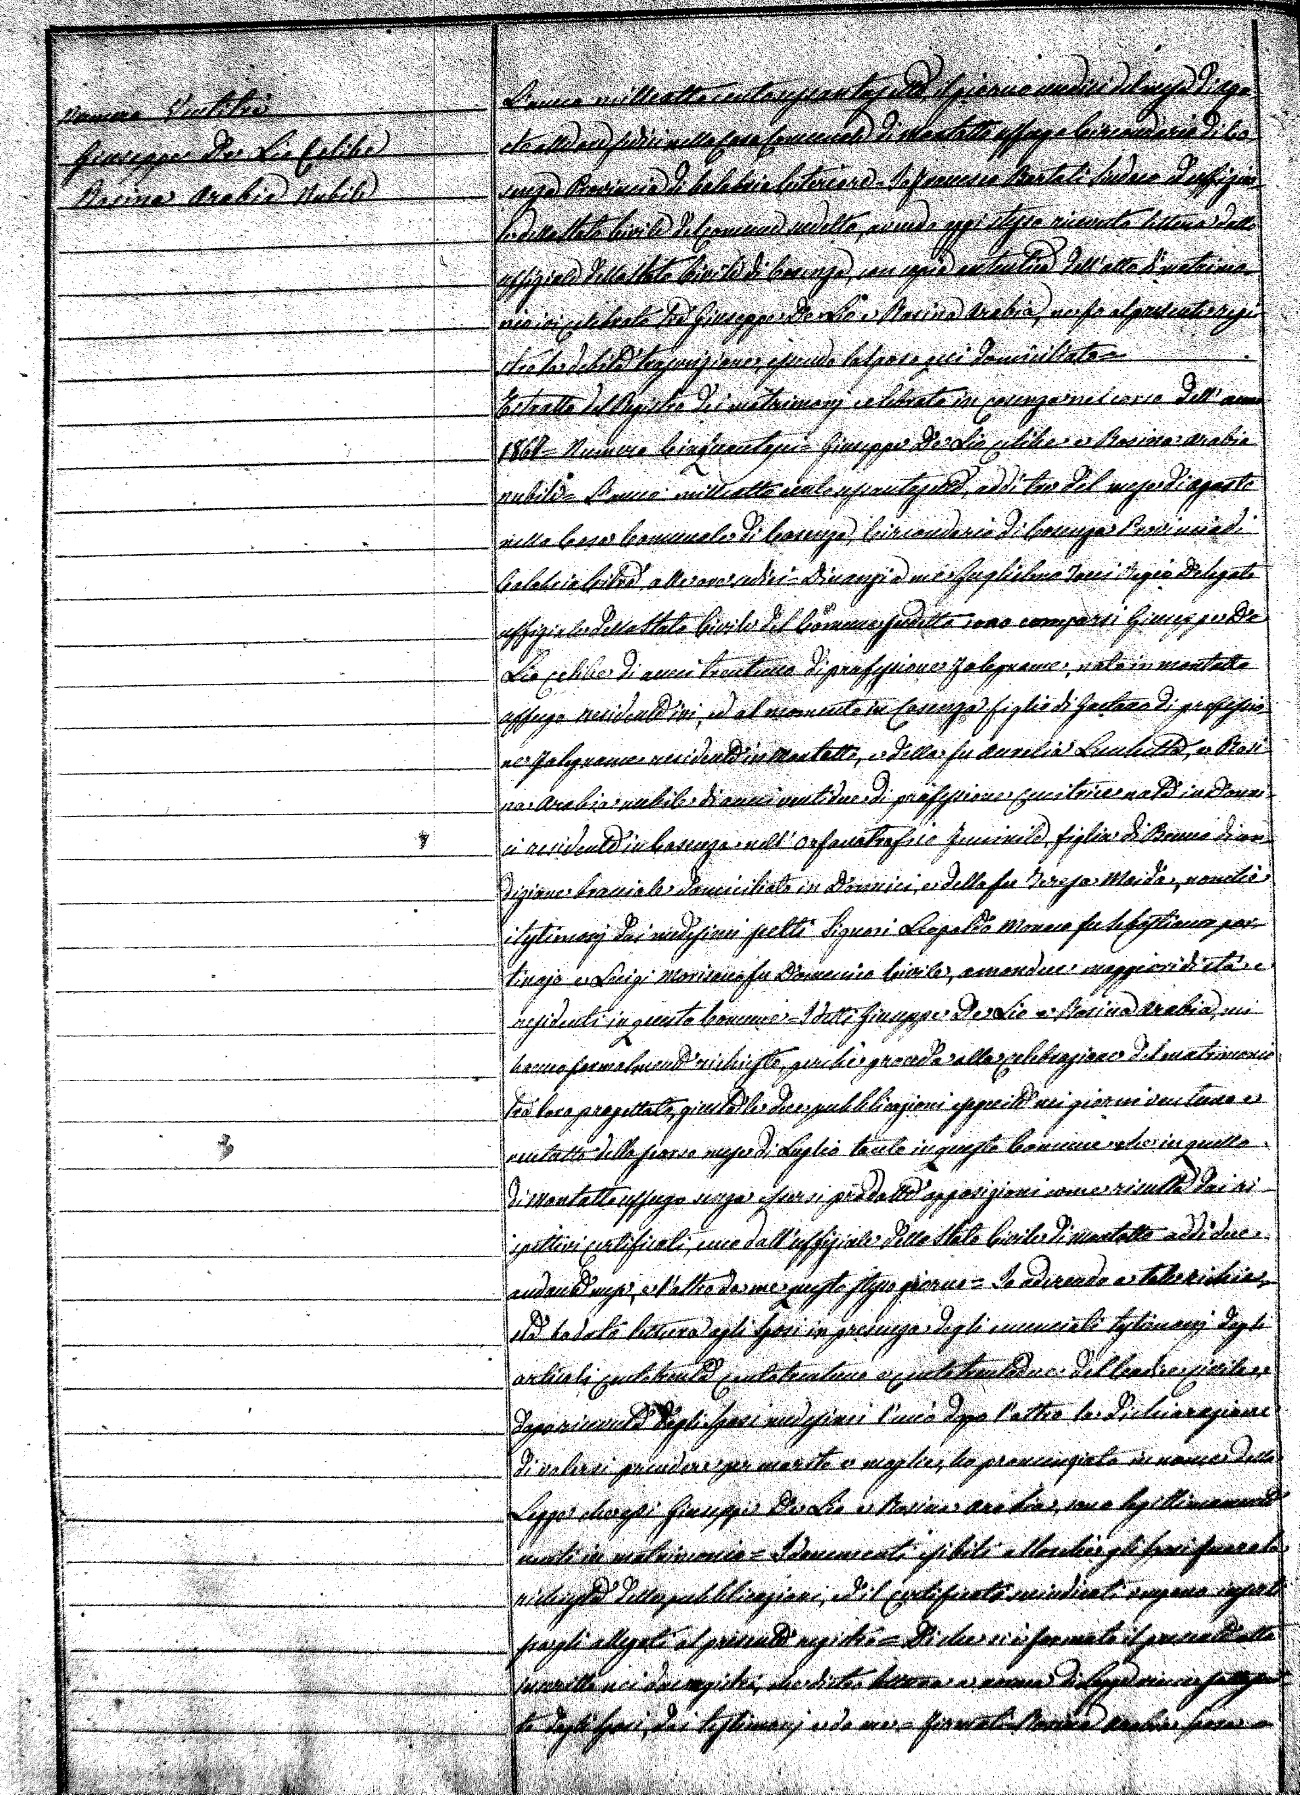 Numero Ventitrè
Giuseppe De Lio Celibe
Rosina Arabia Nubile
L'anno milleottocentosessantasette, il giorno undici del mese d'ago
sto alle ore sedici nella Casa Comunale di Montalto Uffugo Circondario di Co
senza Provincia di Calabria Citeriore = Io Francesco Sindaco d'uffizia
le dello Stato Civile del Comune sudetto, avendo oggi stesso ricevuto lettera dello
uffiziale dello Stato Civile di Cosenza, con copia autentica dell'atto di matrimo
nio ivi celebrato tra Giuseppe De Lio e Rosina Arabia, ne fo al presente regi
stro la debita trascrizione, essendo lo sposo qui domiciliato =
Estratto dal Registro dei matrimonj celebrati in Cosenza nel corso dell'anno
1867 = Numero Cinquantasei = Giuseppe De Lio celibe e Rosina Arabia
nubile = L'anno milleottocentosessantasette, addì tre del mese di agosto
nella Casa Comunale di Cosenza, Circondario di Cosenza Provincia di
Calabria Citra, alle ore sedici = Dinanzi a me Guglielmo Regio Delegato
uffiziale dello Stato Civile del Comune sudetto sono comparsi Giuseppe De
Lio celibe di anni trentuno di professione falegname, nato in Montalto
Uffugo residente ivi, ed al momento in Cosenza figlio di Gaetano di professio
ne falegname residente in Montalto, e della fu Aurelia e Rosi
na Arabia nubile di anni ventidue di professione cucitrice nata in Donni
ci residente in Cosenza nell'Orfanotrofio femminile, figlia di Bruno di con
dizione bracciale domiciliato in Donnici, e della fu Teresa Maida, nonchè
i testimonj dai medesimi scelti Signori Leopoldo Monaco fu Sebastiano por
tinajo e Luigi fu Domenico Civile, amendue maggiori di età e
residenti in questo Comune = I detti Giuseppe De Lio e Rosina Arabia, mi
hanno formalmente richiesto, perchè proceda alla celebrazione del matrimonio
tra loro progettato, giusta le due pubblicazioni eseguite nei giorni ventuno e
ventotto dello scorso mese di Luglio tanto in questo Comune che in quello
di Montalto Uffugo senza essersi prodotte opposizioni come risulta dai ri
spettivi certificati, uno dall'uffiziale dello Stato Civile di Montalto addì due
andante mese, e l'altro da me questo stesso giorno = Io aderendo a tale richie
sta ho dato lettura agli sposi in presenza degli enunciati testimonj degli
articoli centotrenta centotrentuno e centotrentadue del Codice civile, e
dopo ricevuta dagli sposi medesimi l'uno dopo l'altro la dichiarazione
di volersi prendere per marito e moglie, ho pronunziato in nome della
Legge che essi Giuseppe De Lio e Rosina Arabia, sono legittimamente
uniti in matrimonio = I documenti esibiti gli sposi
richiesta delle pubblicazioni, ed il certificato vengono inseriti
fra gli allegati al presente registro = Di che si è formato il presente atto
inscritto nei due registri, che dietro lettura a norma di Legge
to dagli sposi, dai testimonj e da me = Firmati Rosina Arabia sposa =